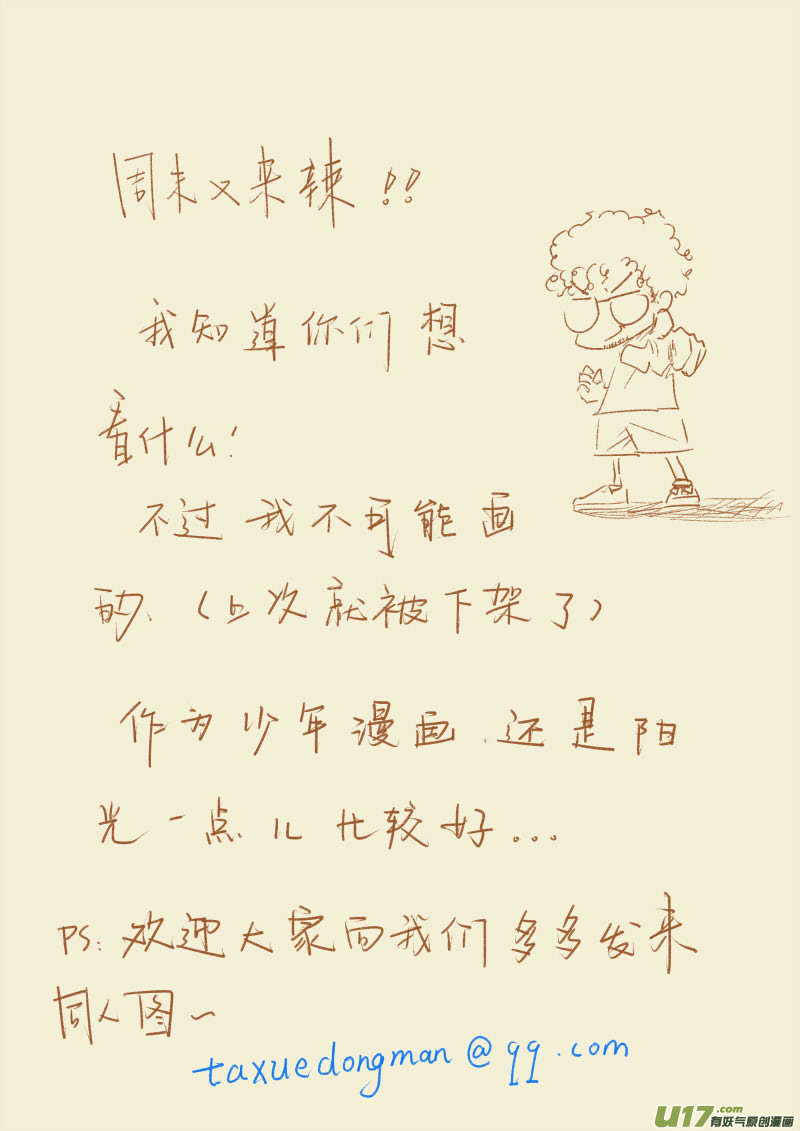 周末又来辣!!
我知道你们想
看什么!
不过我不可能画
的、(上次就被下架了)
作为少年漫画.还是阳
光一点儿比较好...
PS:欢迎大家向我们多多发来
同人图~
taxuedongman@qq.com
U17.com
有妖气原创漫画